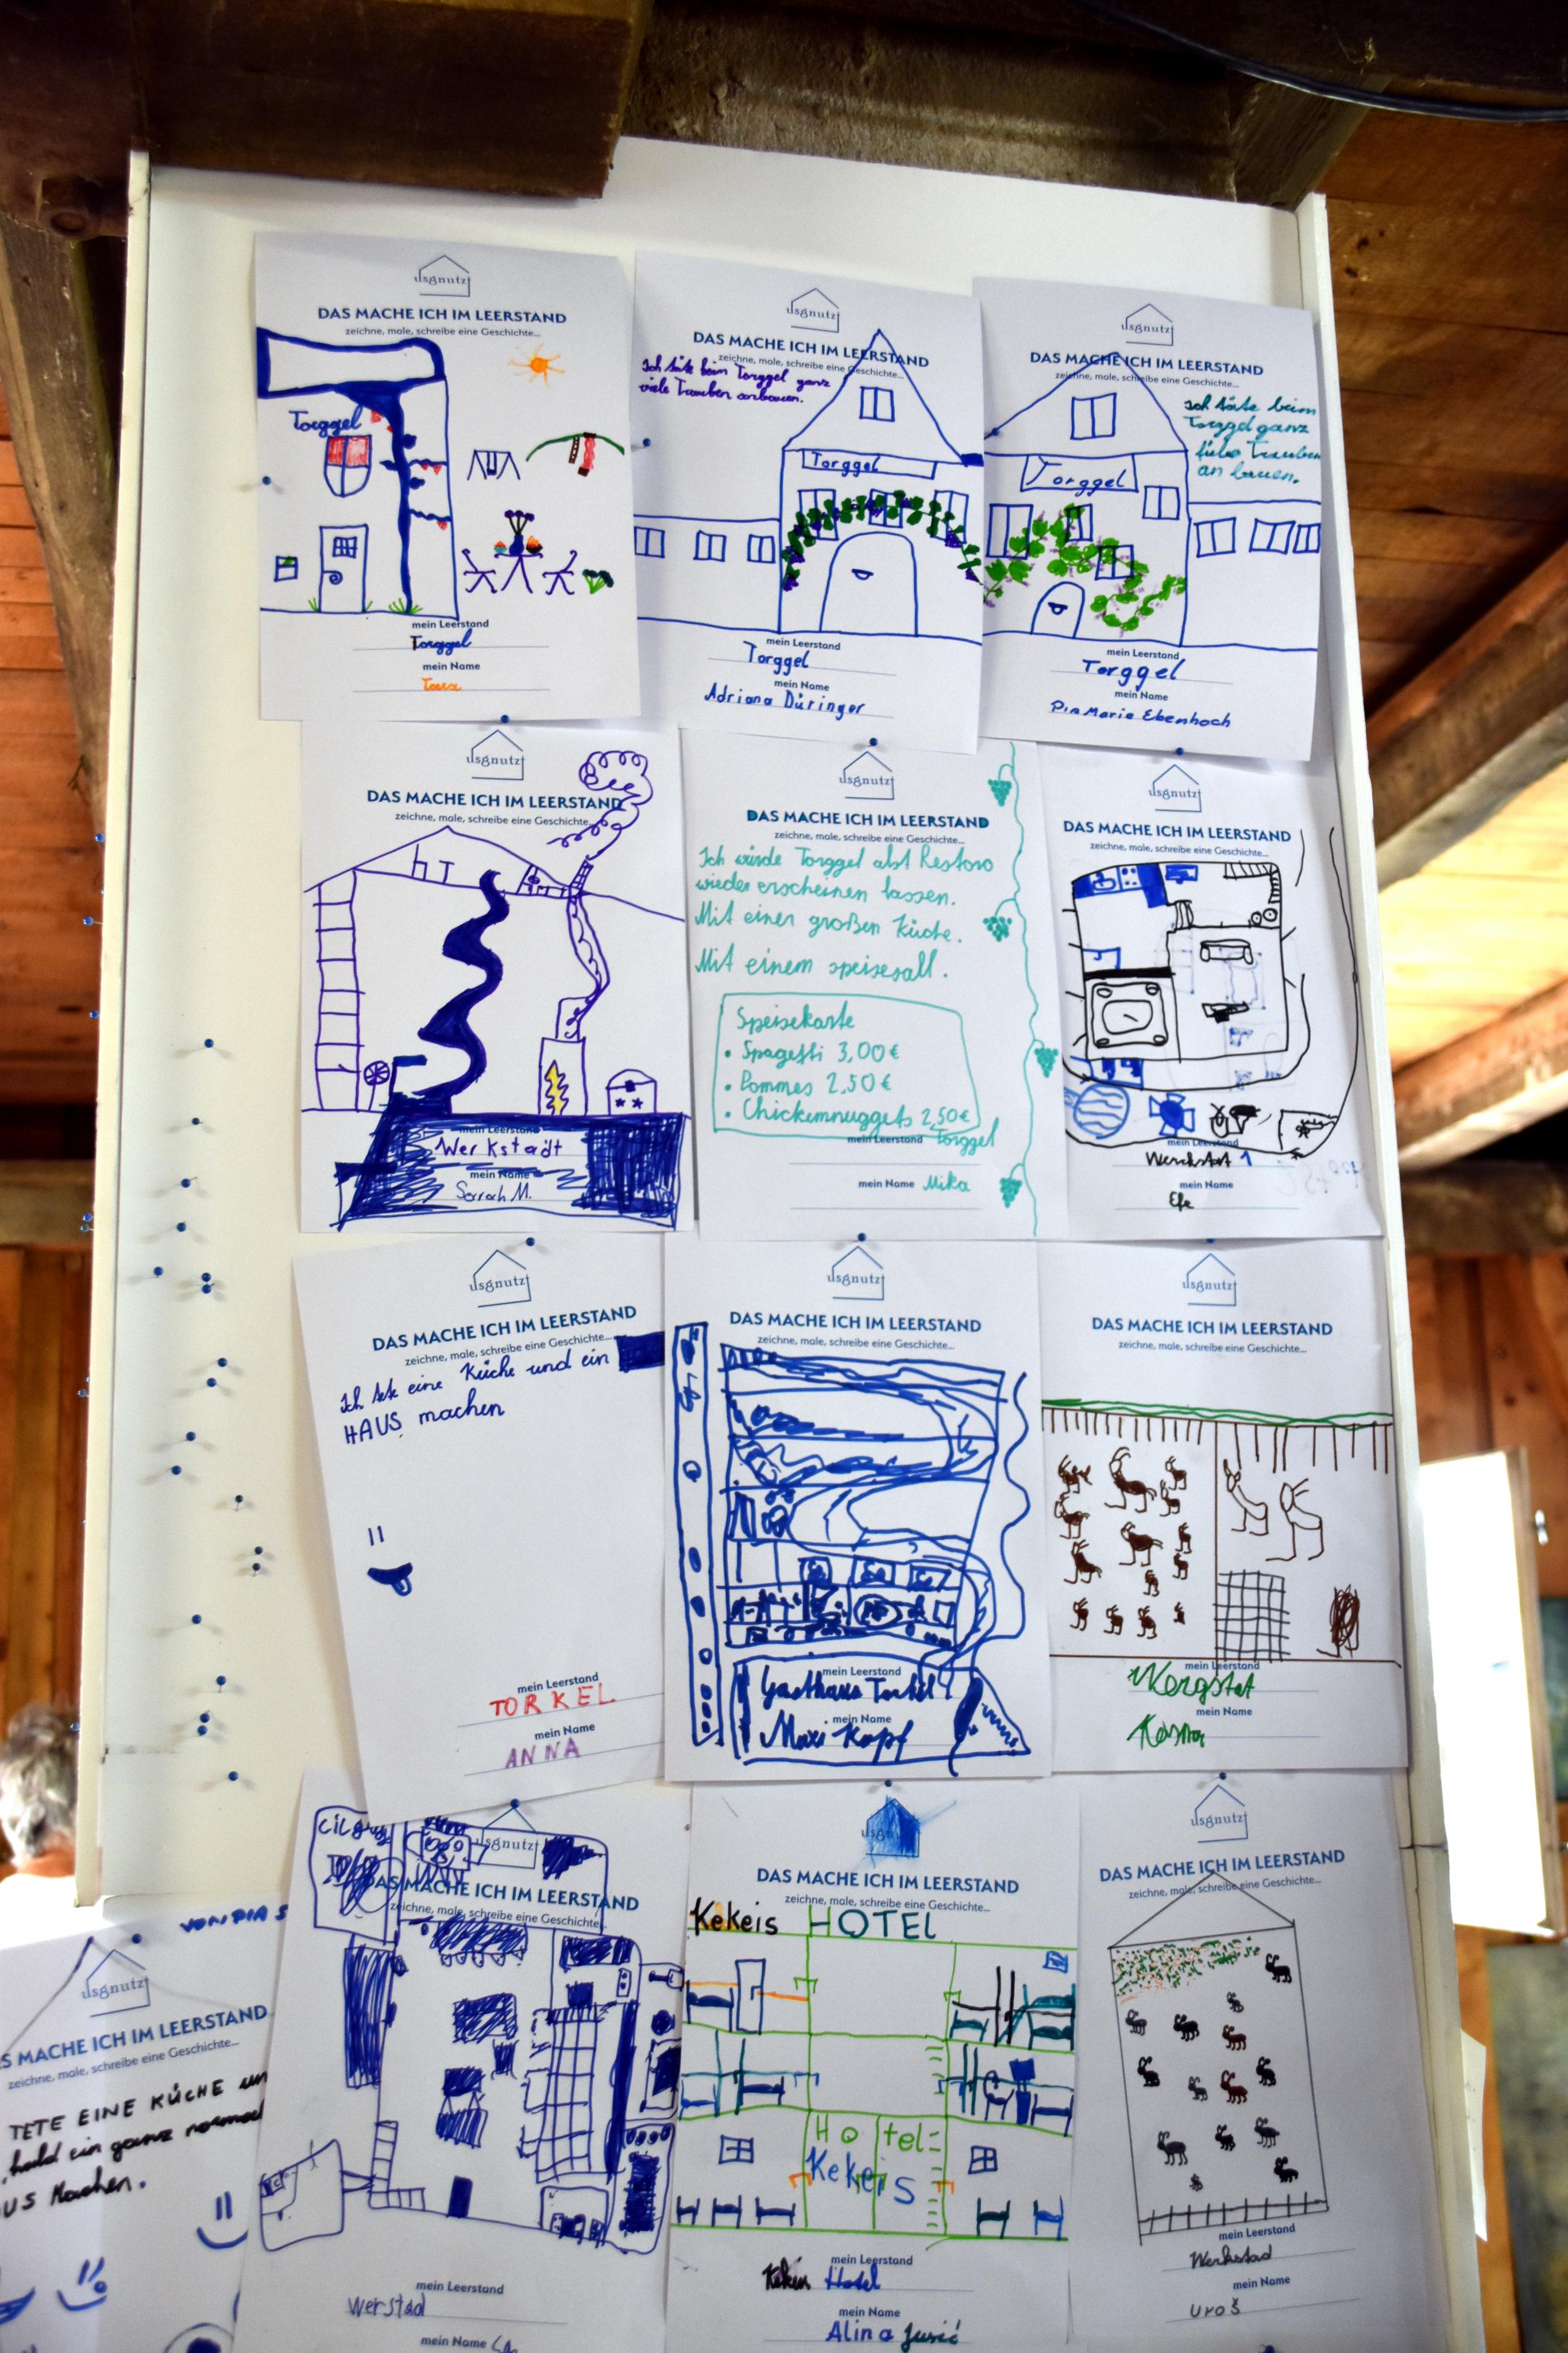 usgnutzt
DAS MACHE ICH IM LEERSTAND
zeichne, male, schreibe eine Geschichte...
Torggel
mein Leerstand
Torggel
mein Name
Tara
usgnutzt
DAS MACHE ICH IM LEERSTAND
zeichne, male, schreibe eine Geschichte...
Ich täte beim Torggel ganz
viele Trauben anbauen.
Torggel
mein Leerstand
Torggel
mein Name
Adriana Düringer
usgnutzt
DAS MACHE ICH IM LEERSTAND
zeichne, male, schreibe eine Geschichte...
ich täte beim
Torggel ganz
Trauben
an bauen.
Torggel
mein Leerstand
Torggel
mein Name
Pia Marie Ebenhoch
usgnutzt
DAS MACHE ICH IM LEERSTAND
zeichne, male, schreibe eine Geschichte...
mein Leerstand
Werkstadt
mein Name
Sarah M.
usgnutzt
DAS MACHE ICH IM LEERSTAND
zeichne, male, schreibe eine Geschichte...
Ich würde Torggel alst Restoro
wieder erscheinen lassen.
Mit einer großen Küche.
Mit einem speisesall.
Speisekarte
• Spagetti 3,00€
• Pommes 2,50€
• Chickemnuggets 2,50€
mein Leerstand Torggel
mein Name Mika
usgnutzt
DAS MACHE ICH IM LEERSTAND
zeichne, male, schreibe eine Geschichte...
mein Leerstand
Werkstat 1
mein Name
Efe
usgnutzt
DAS MACHE ICH IM LEERSTAND
zeichne, male, schreibe eine Geschichte...
Ich tete eine Küche und ein
HAUS machen
mein Leerstand
TORKEL
mein Name
ANNA
usgnutzt
DAS MACHE ICH IM LEERSTAND
zeichne, male, schreibe eine Geschichte...
mein Leerstand
Gasthaus Torkel
mein Name
Maxi Kopf
usgnutzt
DAS MACHE ICH IM LEERSTAND
zeichne, male, schreibe eine Geschichte...
mein Leerstand
Wergstat
mein Name
VON PIA S
usgnutzt
S MACHE ICH IM LEERSTAND
zeichne, male, schreibe eine Geschichte...
TETE EINE KÜCHE un
hald ein ganz normal
US Machen.
usgnutzt
DAS MACHE ICH IM LEERSTAND
zeichne, male, schreibe eine Geschichte...
mein Leerstand
Werstad
mein Name
usgnutzt
DAS MACHE ICH IM LEERSTAND
zeichne, male, schreibe eine Geschichte...
Kekeis HOTEL
Hotel
Kekeis
mein Leerstand
Kekeis Hotel
mein Name
Alina Jusić
usgnutzt
DAS MACHE ICH IM LEERSTAND
zeichne, male, schreibe eine Geschichte...
mein Leerstand
Werkstad
mein Name
uroš